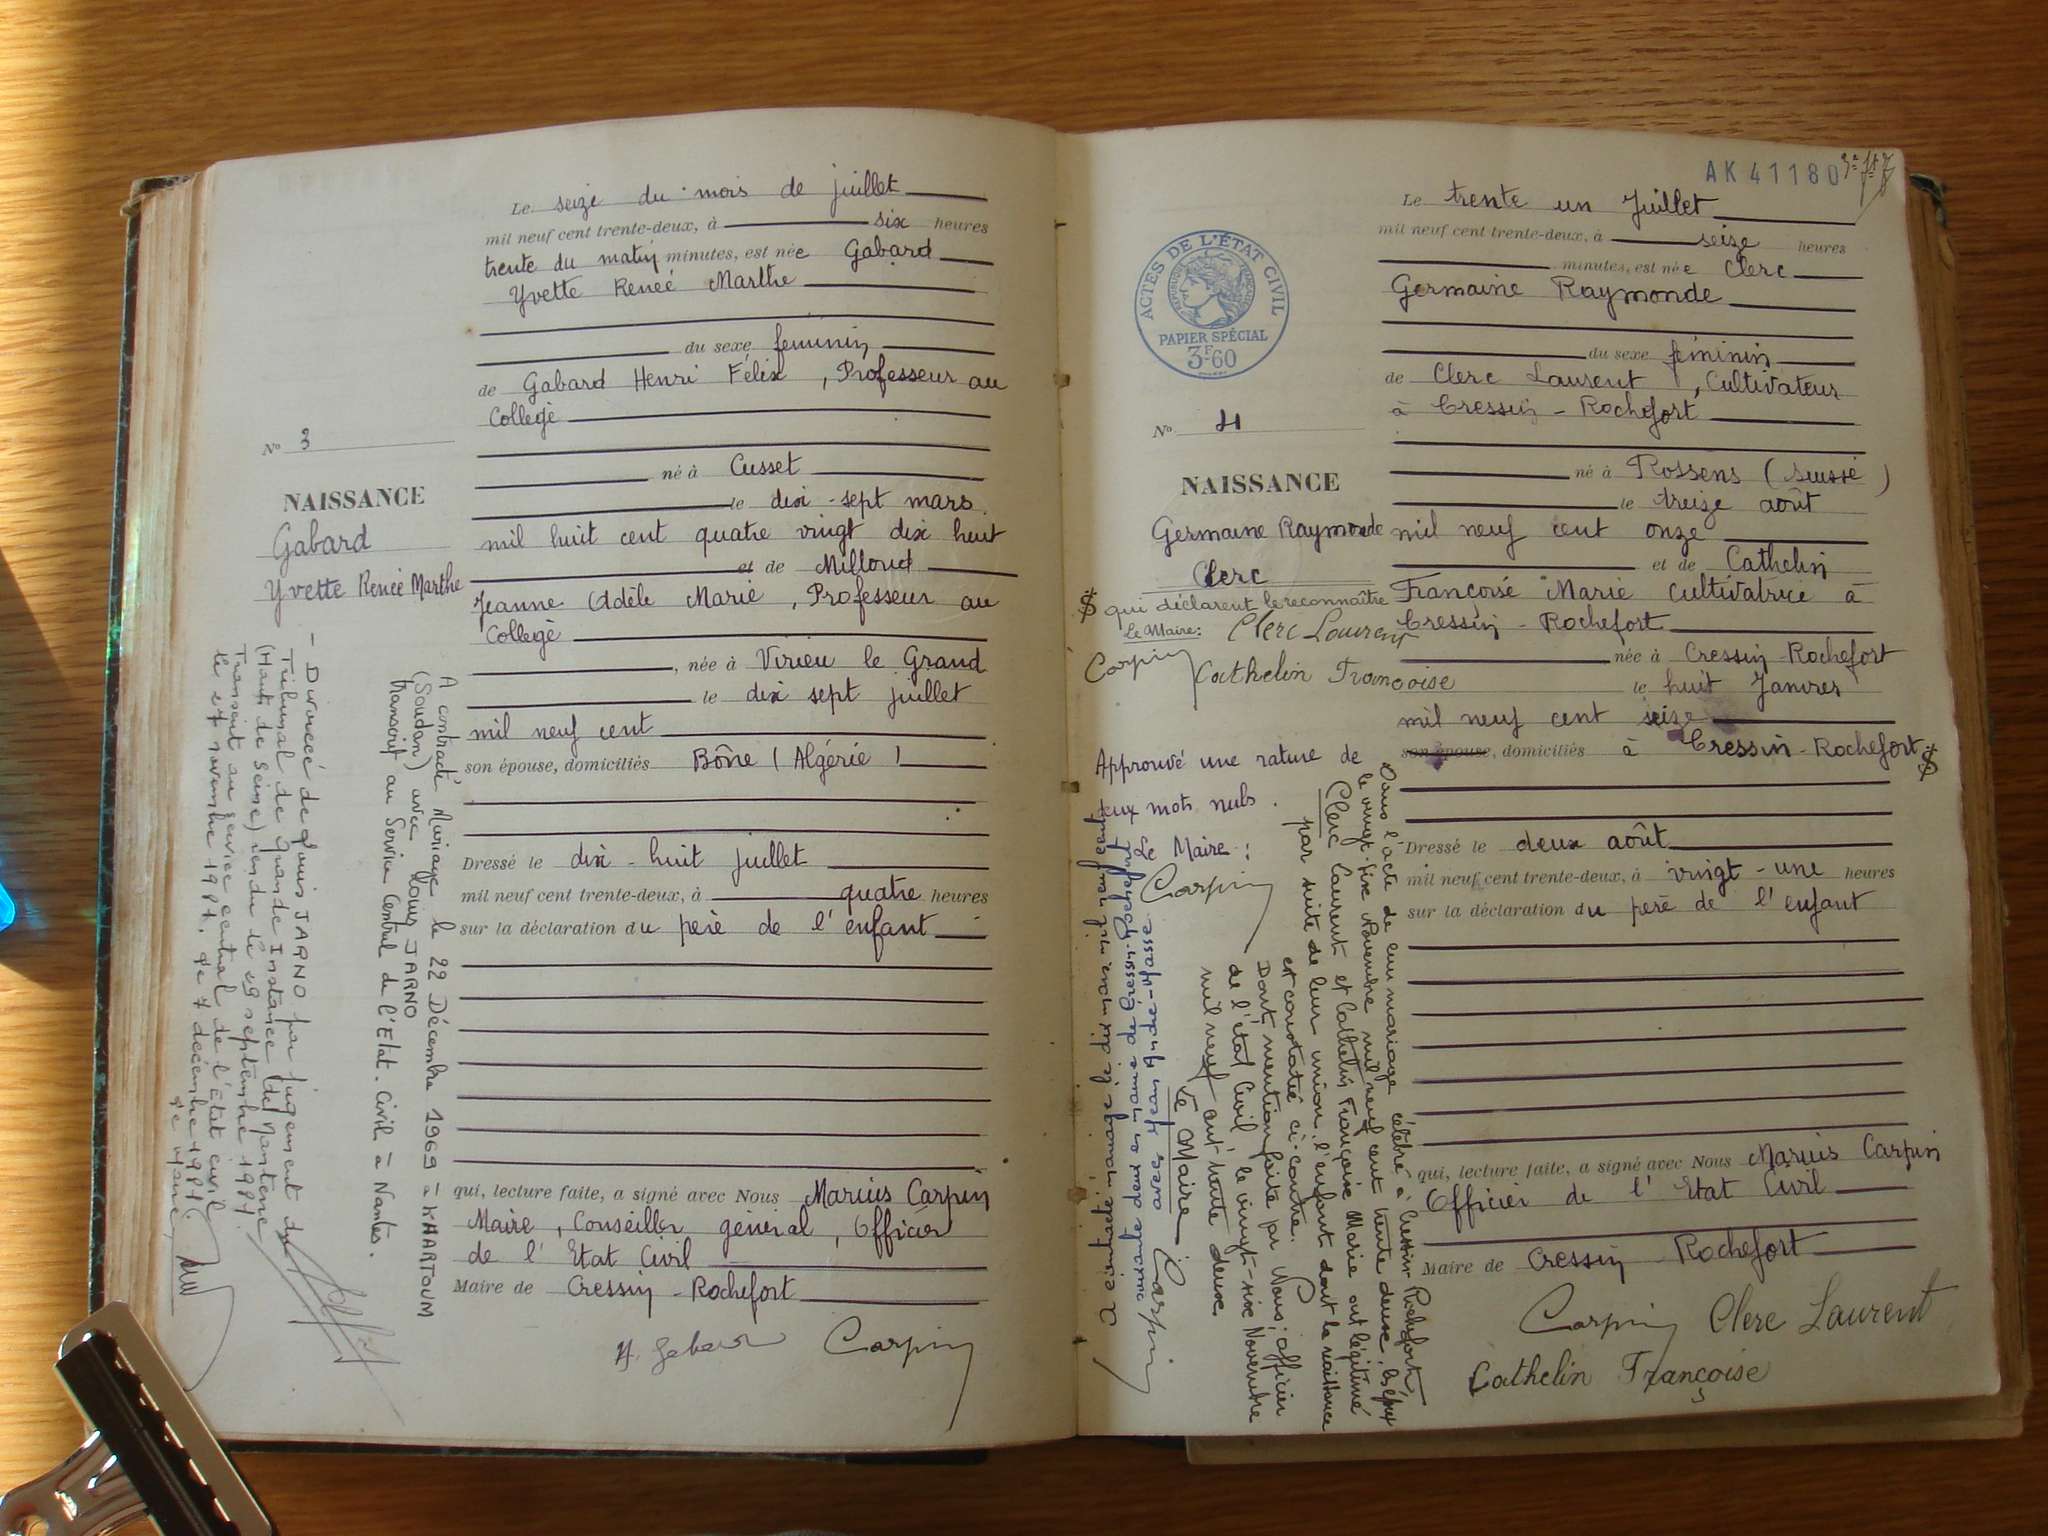 Le seize du mois de juillet
mil neuf cent trente-deux, à six heures
trente du matin minutes, est née Gabard
Yvette Renée Marthe
du sexe féminin
de Gabard Henri Félix, Professeur au
Collège
né à Cusset
le dix-sept mars
mil huit cent quatre vingt dix huit
et de Milloud
Jeanne Adèle Marie, Professeur au
Collège
, née à Virieu le Grand
le dix sept juillet
mil neuf cent
son épouse, domiciliés Bône (Algérie)
Dressé le dix-huit juillet
mil neuf cent trente-deux, à quatre heures
sur la déclaration du père de l'enfant
qui, lecture faite, a signé avec Nous Marius Carpin
Maire, Conseiller général, Officier
de l'Etat Civil
Maire de Cressin-Rochefort
H. Gabard Carpin
No 3
NAISSANCE
Gabard
Yvette Renée Marthe
A contracté Mariage le 22 Décembre 1969 à KHARTOUM
(Soudan) avec Louis JARNO
transcrit au Service Central de l'Etat-Civil à Nantes.
- Divorcée de Louis JARNO par jugement du
Tribunal de Grande Instance de Nanterre
(Hauts de Seine) rendu le 29 septembre 1981.
Transcrit au service central de l'Etat civil
le 27 novembre 1981. Le 7 décembre 1981.
Le Maire,
AK 41180
ACTES DE L'ÉTAT CIVIL
PAPIER SPÉCIAL
3F.60
Le trente un Juillet
mil neuf cent trente-deux, à seize heures
minutes, est née Clerc
Germaine Raymonde
du sexe féminin
de Clerc Laurent, Cultivateur
à Cressin-Rochefort
né à Rossens (Suisse)
le treize août
mil neuf cent onze
et de Cathelin
Françoise Marie Cultivatrice à
Cressin-Rochefort
née à Cressin-Rochefort
le huit Janvier
mil neuf cent seize
son épouse, domiciliés à Cressin-Rochefort $
Dressé le deux août
mil neuf cent trente-deux, à vingt-une heures
sur la déclaration du père de l'enfant
qui, lecture faite, a signé avec Nous Marius Carpin
Officier de l'Etat Civil
Maire de Cressin-Rochefort
Carpin Clerc Laurent
Cathelin Françoise
No 4
NAISSANCE
Germaine Raymonde
Clerc
$ qui déclarent le reconnaître
Le Maire: Clerc Laurent
Carpin Cathelin Françoise
Approuvé une rature de
deux mots nuls.
Le Maire:
Carpin
Dans l'acte de leur mariage célébré à Cressin Rochefort
le vingt-six Novembre mil neuf cent trente deux, les époux
Clerc Laurent et Cathelin Françoise Marie ont légitimé
par suite de leur union, l'enfant dont la naissance
est constatée ci-contre.
Dont mention faite par Nous, officier
de l'état Civil, le vingt-six Novembre
mil neuf cent trente deux.
Le Maire: Carpin
A contracté mariage le dix mars mil neuf cent
cinquante deux en mairie de Cressin-Rochefort
avec Jean André Masse